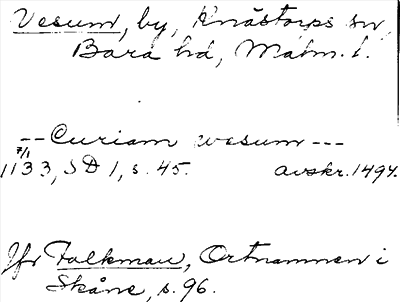 Vesum, by, Knästorps sn,
Bara hd, Malm. l.
--Curiam vesum---
7/1
1133, SD 1, s. 45. avskr. 1494.
Jfr Falkman, Ortnamnen i
Skåne, s. 96.